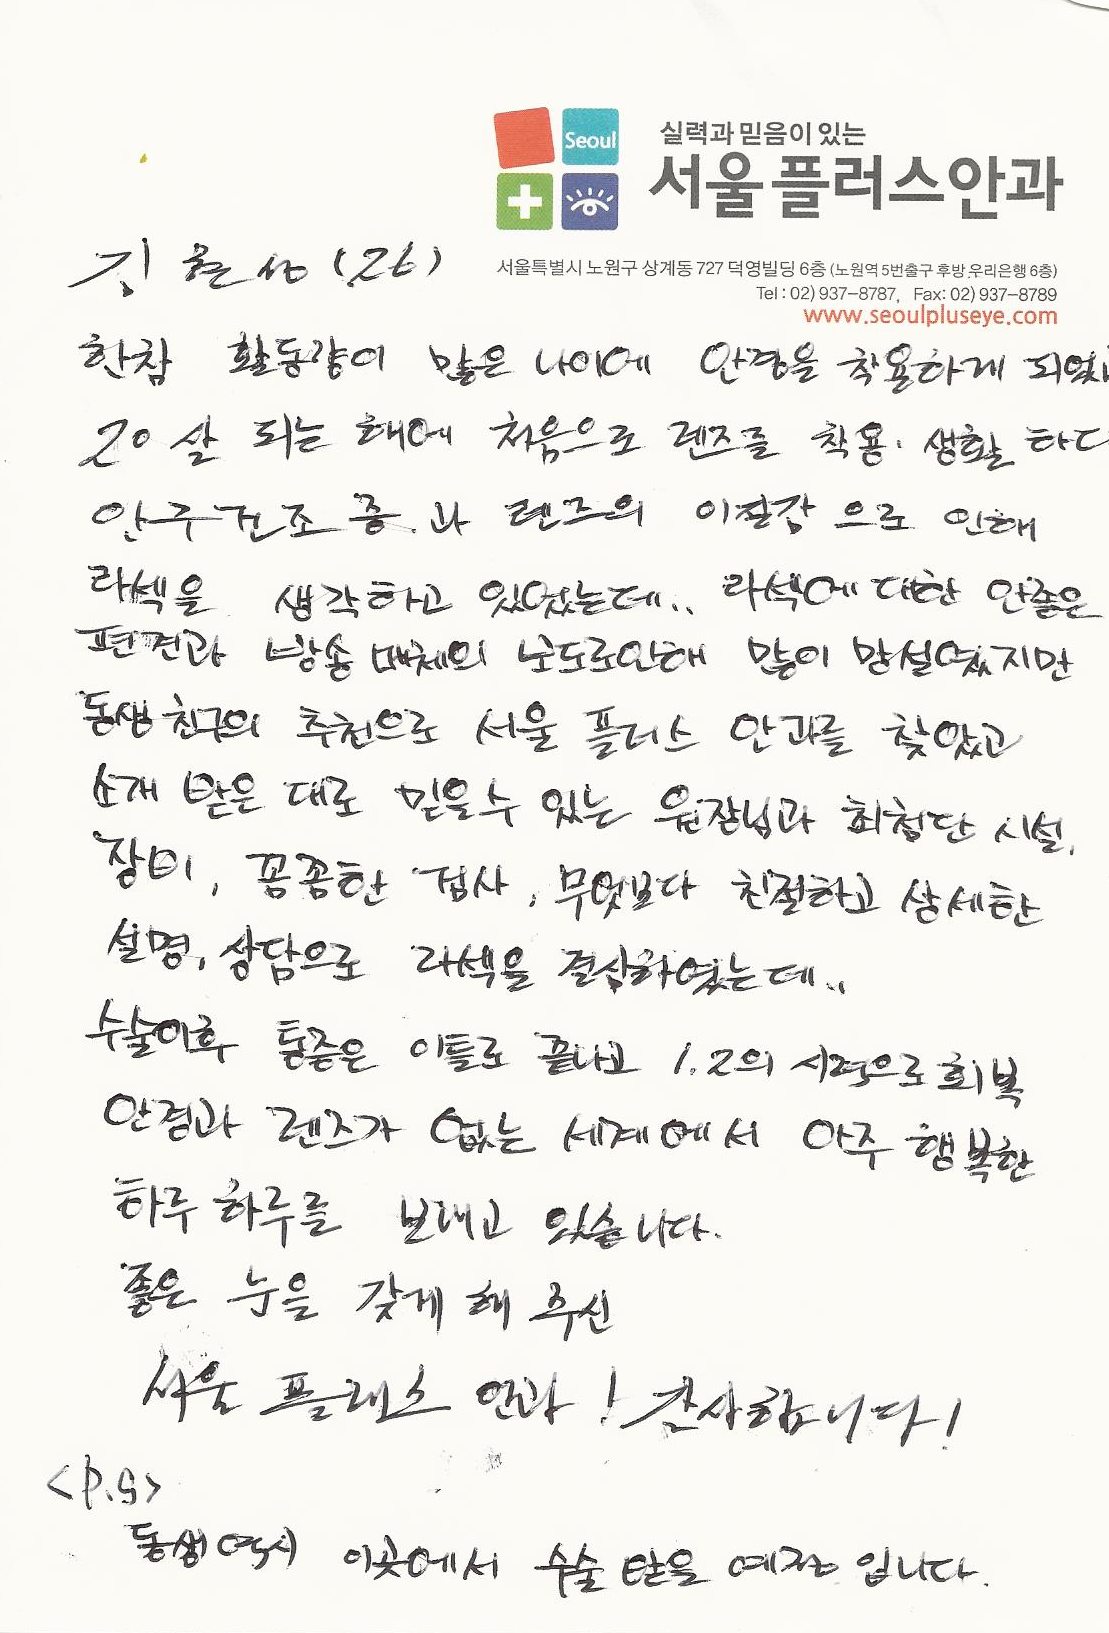 Seoul
실력과 믿음이 있는
서울플러스안과
서울특별시 노원구 상계동 727 덕영빌딩 6층 (노원역 5번출구 후방 우리은행 6층)
Tel : 02) 937-8787, Fax: 02) 937-8789
www.seoulpluseye.com
(26)
한참 활동량이 많은 나이에 안경을 착용하게 되었고
20살 되는 해에 처음으로 렌즈를 착용. 생활 하다
안구건조증.과 렌즈의 이질감으로 인해
라섹을 생각하고 있었는데.. 라섹에 대한 안좋은
편견과 방송매체의 보도로인해 많이 망설였지만
동생친구의 추천으로 서울 플러스 안과를 찾았고
소개 받은 대로 믿을수 있는 원장님과 최첨단 시설,
장비, 꼼꼼한 검사, 무엇보다 친절하고 상세한
설명, 상담으로 라섹을 결심하였는데..
수술이후 통증은 이틀로 끝나고 1.2의 시력으로 회복
안경과 렌즈가 없는 세계에서 아주 행복한
하루 하루를 보내고 있습니다.
좋은 눈을 갖게 해 주신
서울 플러스 안과! 감사합니다!
<P.S>
동생역시 이곳에서 수술 받을 예정 입니다.